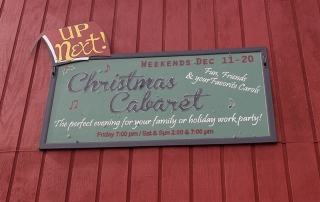 UP
Next!
Weekends Dec 11-20
Christmas
Cabaret
Fun, Friends
& your Favorite Carols
The perfect evening for your family or holiday work party!
Friday 7:00 pm / Sat & Sun 2:00 & 7:00 pm